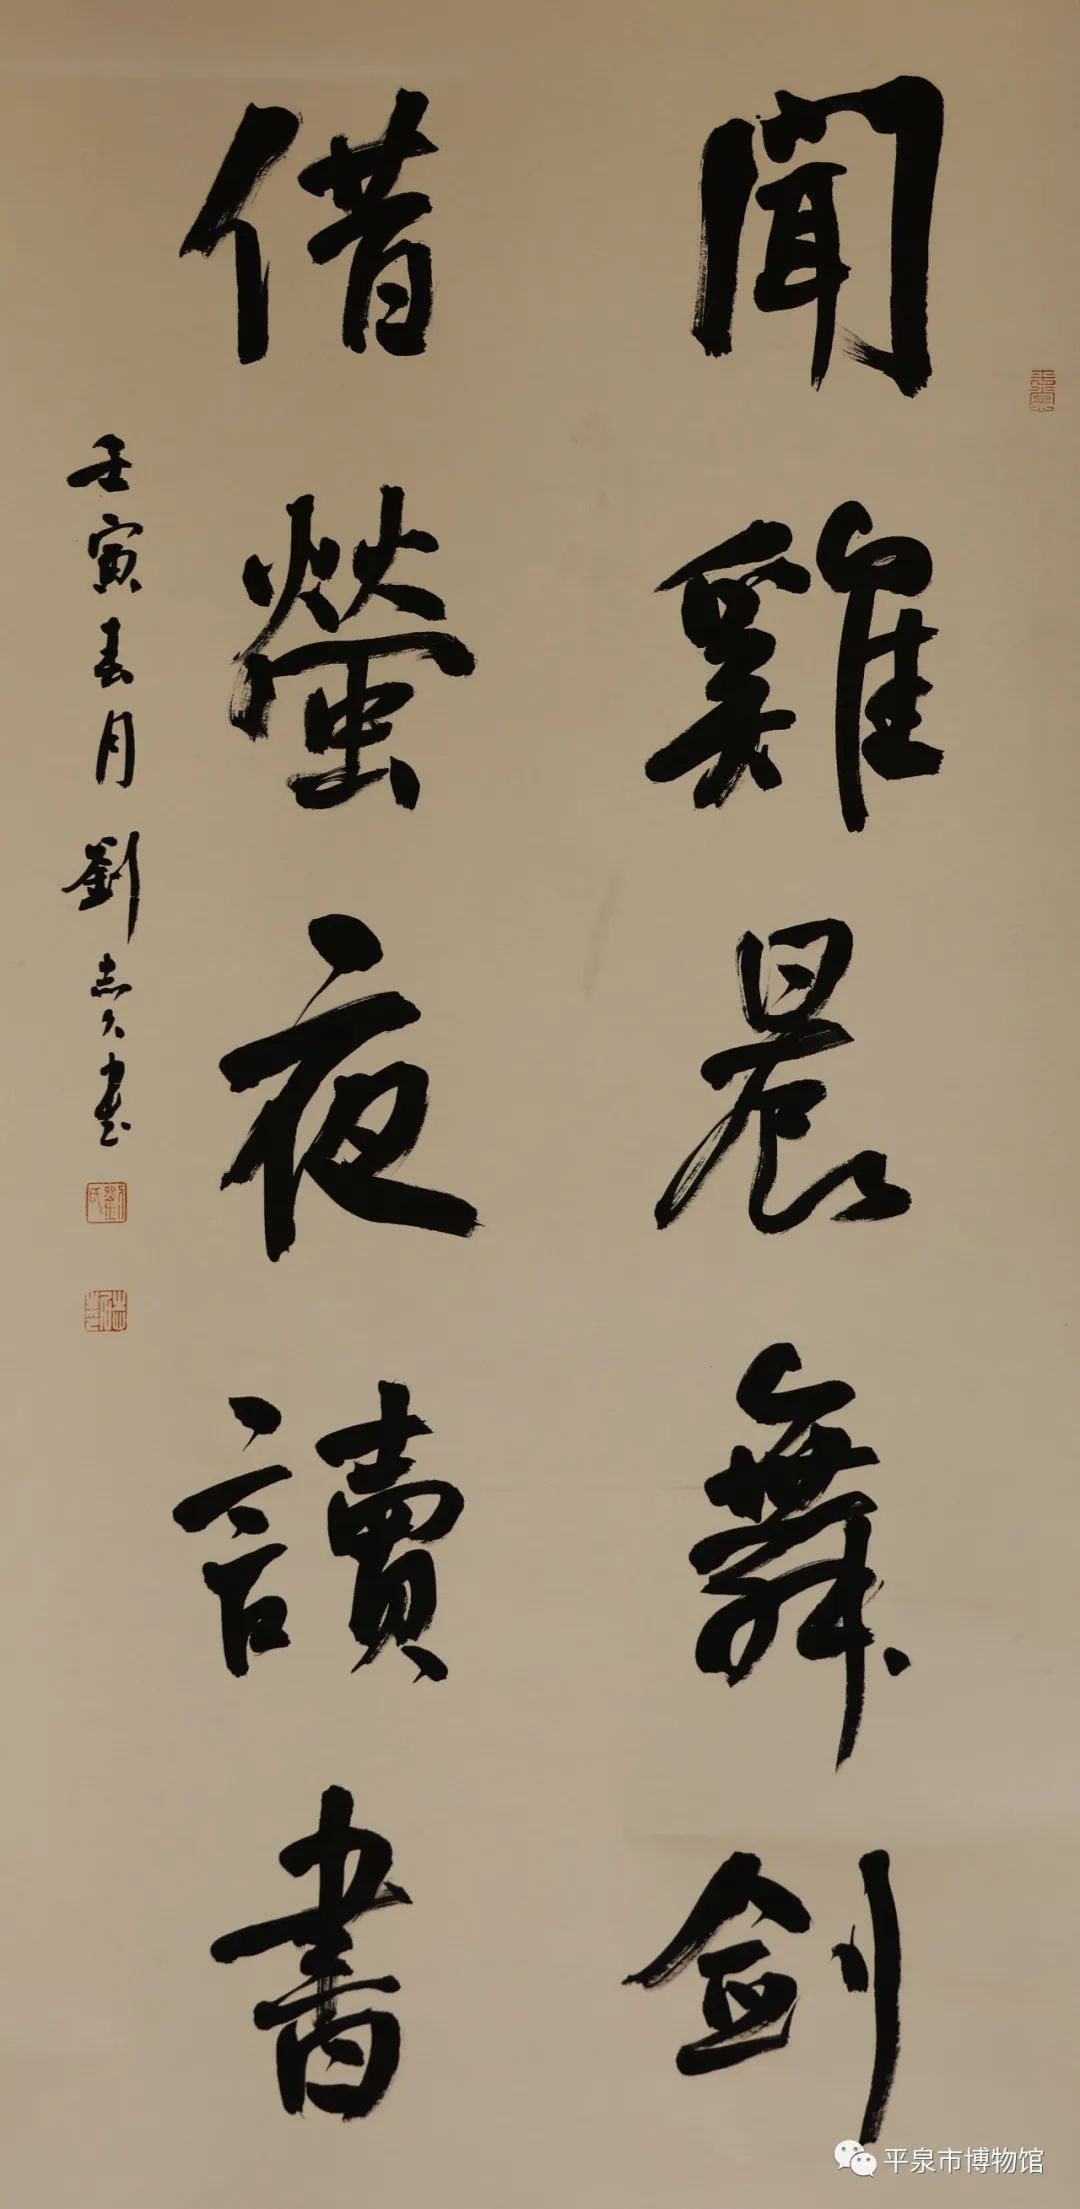 聞雞晨舞剑
借螢夜讀書
壬寅春月劉志久書
劉氏
平泉市博物馆